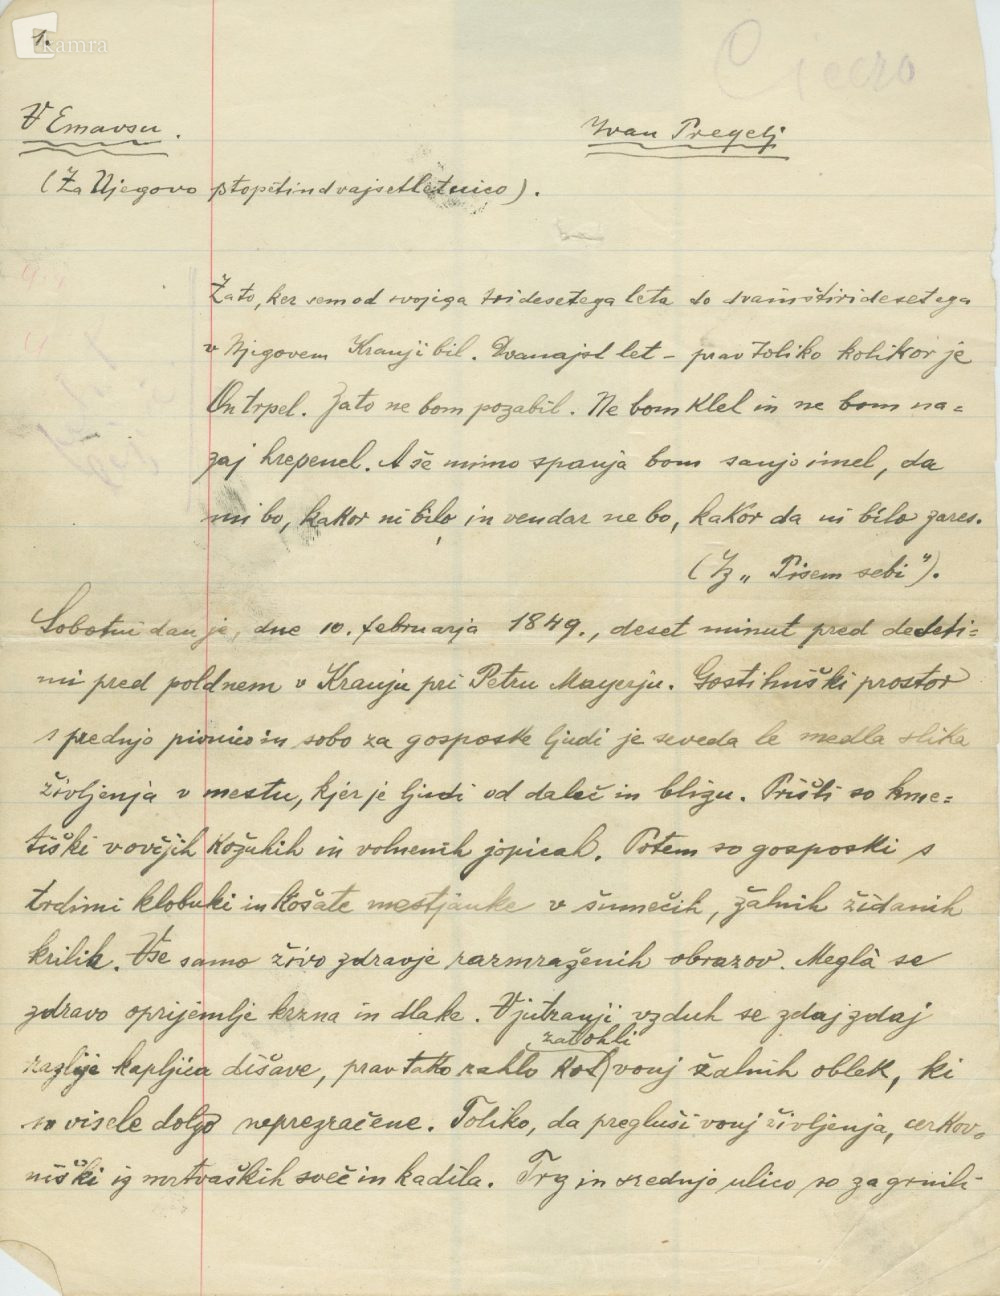 1.
kamra
Cicero
V Emavsu.
Ivan Pregelj
(Za Njegovo stopetindvajsetletnico).
Zato, ker sem od svojega tridesetega leta do dvainštiridesetega
v Njegovem Kranji bil. Dvanajst let – prav toliko kolikor je
On trpel. Zato ne bom pozabil. Ne bom klel in ne bom na=
zaj hrepenel. A še mimo spanja bom sanjo imel, da
mi bo, kakor ni bilo, in vendar ne bo, kakor da ni bilo zares.
(Iz „Pisem sebi").
Sobotni dan je, dne 10. februarja 1849., deset minut pred deseti=
mi pred poldnem v Kranju pri Petru Mayerju. Gostilniški prostor
s prednjo pivnico in sobo za gosposke ljudi je seveda le medla slika
življenja v mestu, kjer je ljudi od daleč in blizu. Prišli so kme=
tiški v ovčjih kožuhih in volnenih jopicah. Potem so gosposki s
trdimi klobuki in košate mestjanke v šumečih, žalnih židanih
krilih. Vse samo živo zdravje razmraženih obrazov. Meglà se
zdravo oprijemlje krzna in dlake. V jutranji vzduh se zdaj zdaj
zatohli
razlije kapljica dišave, prav tako rahlo kot vonj žalnih oblek, ki
so visele dolgo neprezračene. Toliko, da pregluši vonj življenja, cerkov=
niški iz mrtvaških sveč in kadila. Trg in srednjo ulico so zagrnili